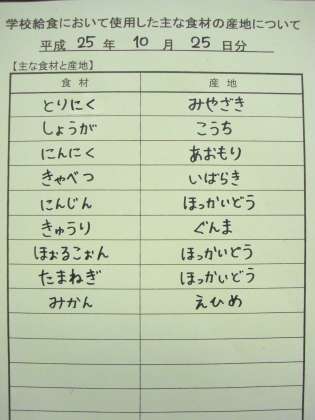 学校給食において使用した主な食材の産地について
平成 25 年 10 月 25 日分
【主な食材と産地】
食材 産地
とりにく みやざき
しょうが こうち
にんにく あおもり
きゃべつ いばらき
にんじん ほっかいどう
きゅうり ぐんま
ほぉるこぉん ほっかいどう
たまねぎ ほっかいどう
みかん えひめ